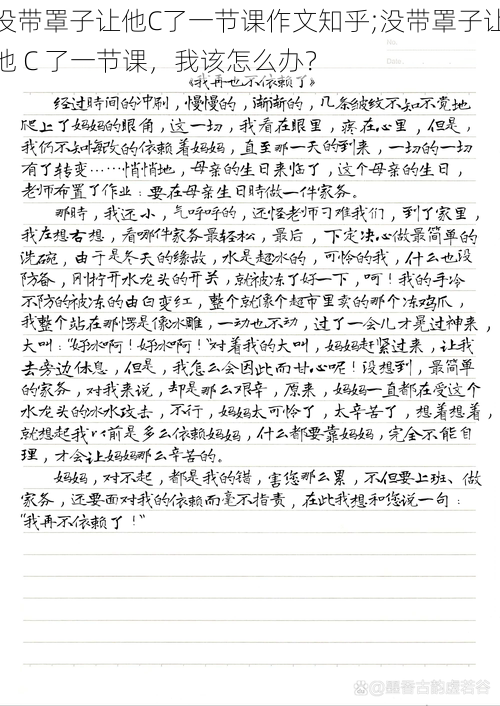 没带罩子让他C了一节课作文知乎;没带罩子让
他 C 了一节课，我该怎么办?
No.
Date
《我再也不依赖了》
经过时间的冲刷，慢慢的，渐渐的，几条皱纹不知不觉地
爬上了妈妈的眼角，这一切，我看在眼里，疼在心里，但是，
我仍不知悔改的依赖着妈妈，直至那一天的到来，一切的一切
有了转变……悄悄地，母亲的生日来临了，这个母亲的生日，
老师布置了作业：要在母亲生日时做一件家务。
那时，我还小，气呼呼的，还怪老师刁难我们，到了家里，
我左想右想，看哪件家务最轻松，最后，下定决心做最简单的
洗碗，由于是冬天的缘故，水是超冰的，可怜的我，什么也没
防备，刚拧开水龙头的开关，就被冻了好一下，呵！我的手冷
不防的被冻的由白变红，整个就像个超市里卖的那个冻鸡爪，
我整个站在那愣是像冰雕，一动也不动，过了一会儿才晃过神来，
大叫：“好冰啊！好冰啊！”对着我的大叫，妈妈赶紧过来，让我
去旁边休息，但是，我怎么会因此而甘心呢！没想到，最简单
的家务，对我来说，却是那么艰辛，原来，妈妈一直都在受这个
水龙头的冰水攻击，不行，妈妈太可怜了，太辛苦了，想着想着，
就想起我以前是多么依赖妈妈，什么都要靠妈妈，完全不能自
理，才会让妈妈那么辛苦的。
妈妈，对不起，都是我的错，害您那么累，不但要上班、做
家务，还要面对我的依赖而毫不指责，在此我想和您说一句：
“我再不依赖了！”